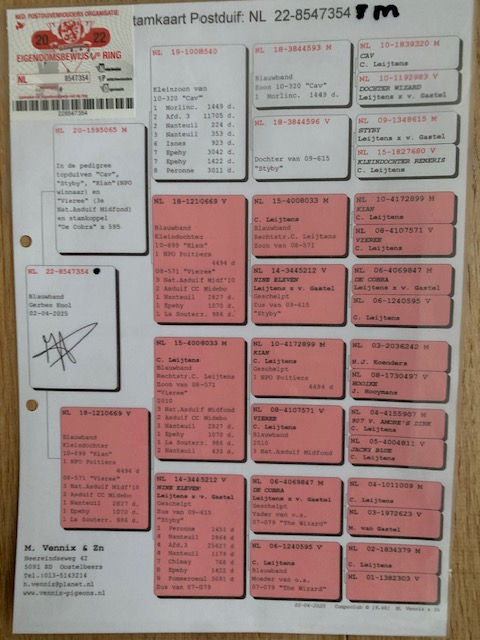 NED. POSTDUIVENHOUDERS ORGANISATIE
20 22
EIGENDOMSBEWIJS v/d RING
NL 8547354
228547354
Stamkaart Postduif: NL 22-8547354 m
NL 20-1595065 M
In de pedigree
topduiven "Cav",
"Styby", "Kian"(NPO
winnaar) en
"Vieree" (3e
Nat.Asduif Midfond)
en stamkoppel
"De Cobra" x 595
NL 22-8547354
Blauwband
Gerbes Knol
02-04-2025
NL 18-1210669 V
Blauwband
Kleindochter
10-899 "Kian"
1 NPO Poitiers
4494 d
08-571 "Vieree"
3 Nat.Asduif Midf'10
2 Asduif CC Midebo
1 Nanteuil 2827 d.
1 Epehy 1070 d.
1 La Souterr. 986 d.
M. Vennix & Zn
Heereindseweg 42
5091 RD Oostelbeers
Tel.:013-5143214
h.vennix@planet.nl
www.vennix-pigeons.nl
19-1008540
Kleinzoon van
10-320 "Cav"
1 Morlinc. 1449 d.
2 Afd.3 11705 d.
2 Nanteuil 224 d.
2 Nanteuil 353 d.
6 Isnes 923 d.
7 Epehy 3042 d.
7 Epehy 1422 d.
8 Peronne 3011 d.
NL 18-1210669 V
Blauwband
Kleindochter
10-899 "Kian"
1 NPO Poitiers
4494 d
08-571 "Vieree"
3 Nat.Asduif Midf'10
2 Asduif CC Midebo
1 Nanteuil 2827 d.
1 Epehy 1070 d.
1 La Souterr. 986 d.
NL 15-4008033 M
C. Leijtens
Blauwband
Rechtstr.C. Leijtens
Zoon van 08-571
"Vieree"
2010
3 Nat.Asduif Midfond
2 Asduif CC Midebo
1 Nanteuil 2827 d.
1 Epehy 1070 d.
1 La Souterr. 986 d.
2 Nanteuil 430 d.
NL 14-3445212 V
NINE ELEVEN
Leijtens x v. Gastel
Geschelpt
Zus van 09-615
"Styby"
1 Peronne 1451 d
4 Nanteuil 2866 d
4 Afd.3 25627 d
4 Nanteuil 1179 d
7 Chimay 748 d
8 Epehy 1422 d
9 Pommeroeul 5091 d
Zus van 07-079
NL 18-3844593 M
Blauwband
Zoon 10-320 "Cav"
1 Morlinc. 1449 d.
NL 18-3844596 V
Dochter van 09-615
"Styby"
NL 15-4008033 M
C. Leijtens
Blauwband
Rechtstr.C. Leijtens
Zoon van 08-571
NL 14-3445212 V
NINE ELEVEN
Leijtens x v. Gastel
Geschelpt
Zus van 09-615
"Styby"
NL 10-4172899 M
KIAN
C. Leijtens
Geschelpt
1 NPO Poitiers
4494 d
NL 08-4107571 V
VIEREE
C. Leijtens
Blauwband
2010
3 Nat.Asduif Midfond
NL 06-4069847 M
DE COBRA
Leijtens x v. Gastel
Geschelpt
Vader van o.a.
07-079 "The Wizard"
NL 06-1240595 V
C. Leijtens
Blauwband
Moeder van o.a.
07-079 "The Wizard"
NL 10-1839320 M
CAV
C. Leijtens
NL 10-1192983 V
DOCHTER WIZARD
Leijtens x v. Gastel
NL 09-1348615 M
STYBY
Leijtens x v. Gastel
NL 15-1827680 V
KLEINDOCHTER REMERIS
C. Leijtens
NL 10-4172899 M
KIAN
C. Leijtens
NL 08-4107571 V
VIEREE
C. Leijtens
NL 06-4069847 M
DE COBRA
Leijtens x v. Gastel
NL 06-1240595 V
C. Leijtens
NL 03-2036242 M
H.J. Koenders
NL 08-1730497 V
J. Hooymans
NL 04-4155907 M
C. Leijtens
NL 05-4004811 V
JACKY BLUE
C. Leijtens
NL 04-1011009 M
Leijtens x v. Gastel
NL 03-1972623 V
M. van Gastel
NL 02-1834379 M
C. Leijtens
NL 01-1382303 V
02-04-2025 Compuclub © [9.45] M. Vennix & Zn